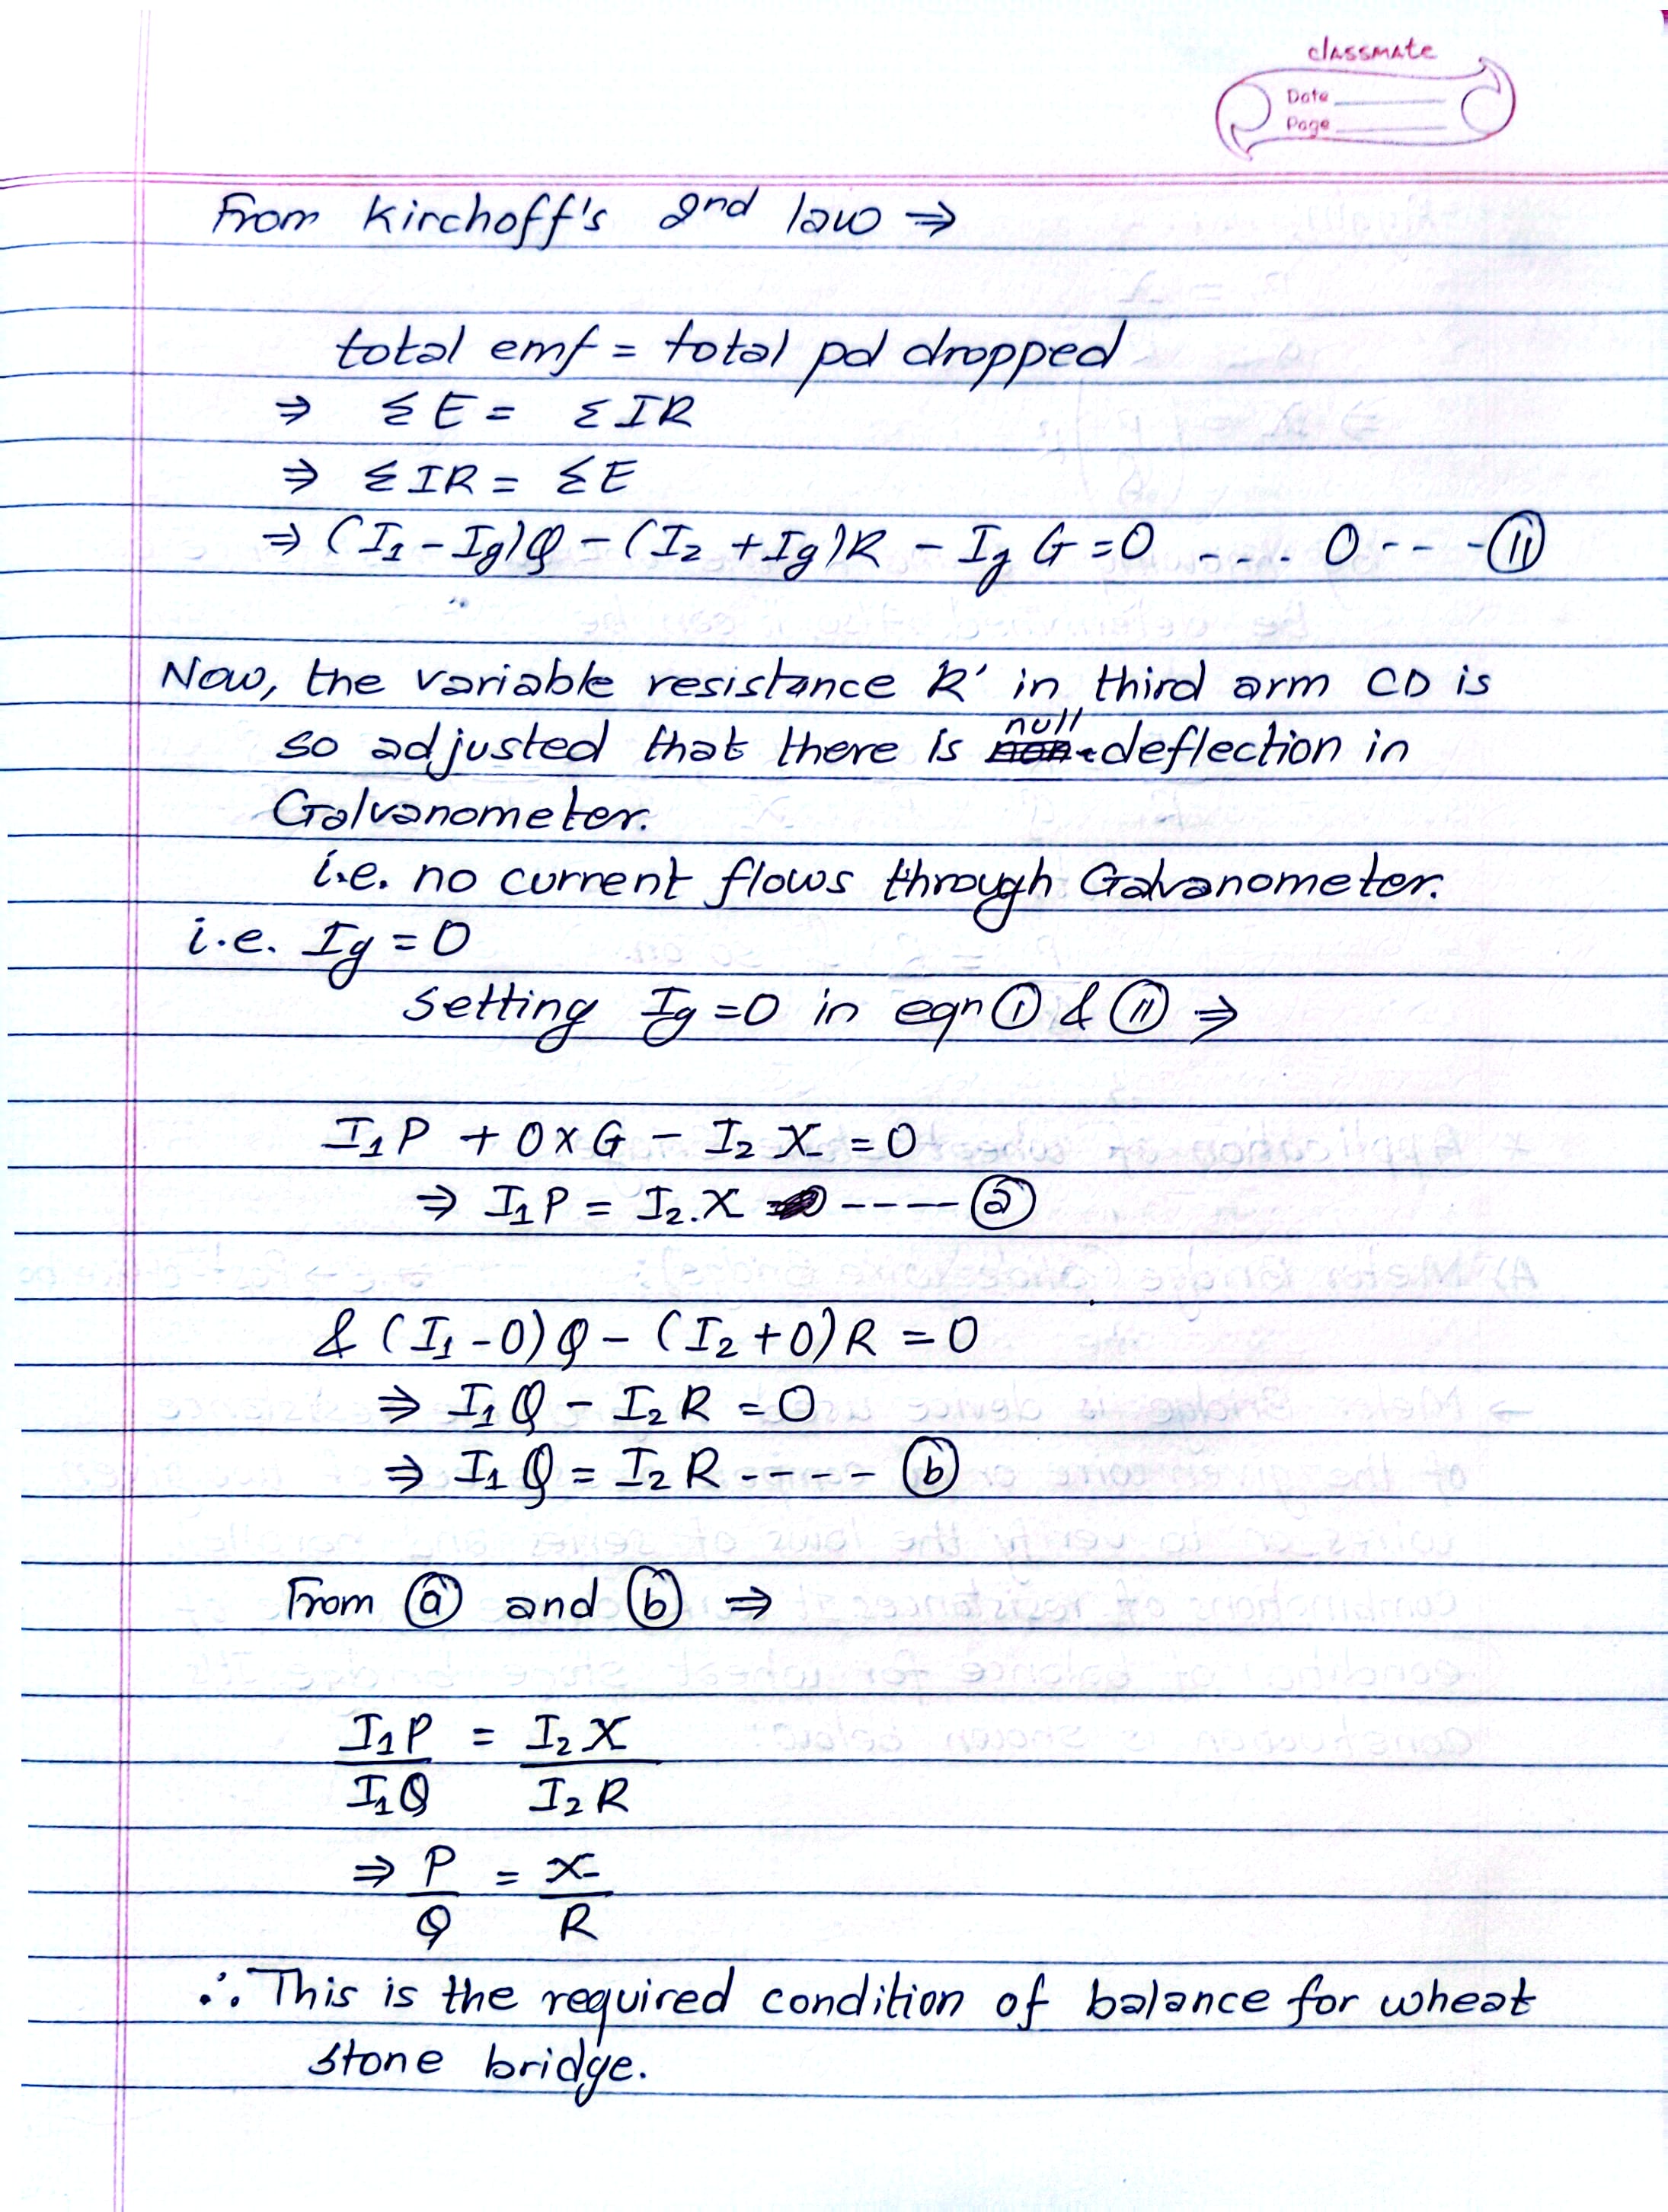 classmate
Date
Page
From Kirchoff's 2nd law ⇒
total emf = total pd dropped
⇒ ΣE = ΣIR
⇒ ΣIR = ΣE
⇒ (I₁ - Ig)Q - (I₂ + Ig)R - Ig G = 0 - - -. 0 - - - (II)
Now, the variable resistance R' in third arm CD is
so adjusted that there is null deflection in
Galvanometer.
i.e. no current flows through Galvanometer.
i.e. Ig = 0
Setting Ig = 0 in eqn (I) & (II) ⇒
I₁P + 0×G - I₂ X = 0
⇒ I₁P = I₂.X ---- (a)
& (I₁ - 0)Q - (I₂ + 0)R = 0
⇒ I₁Q - I₂R = 0
⇒ I₁Q = I₂R ---- (b)
From (a) and (b) ⇒
I₁P = I₂X
I₁Q I₂R
⇒ P = X
Q R
∴ This is the required condition of balance for wheat
stone bridge.